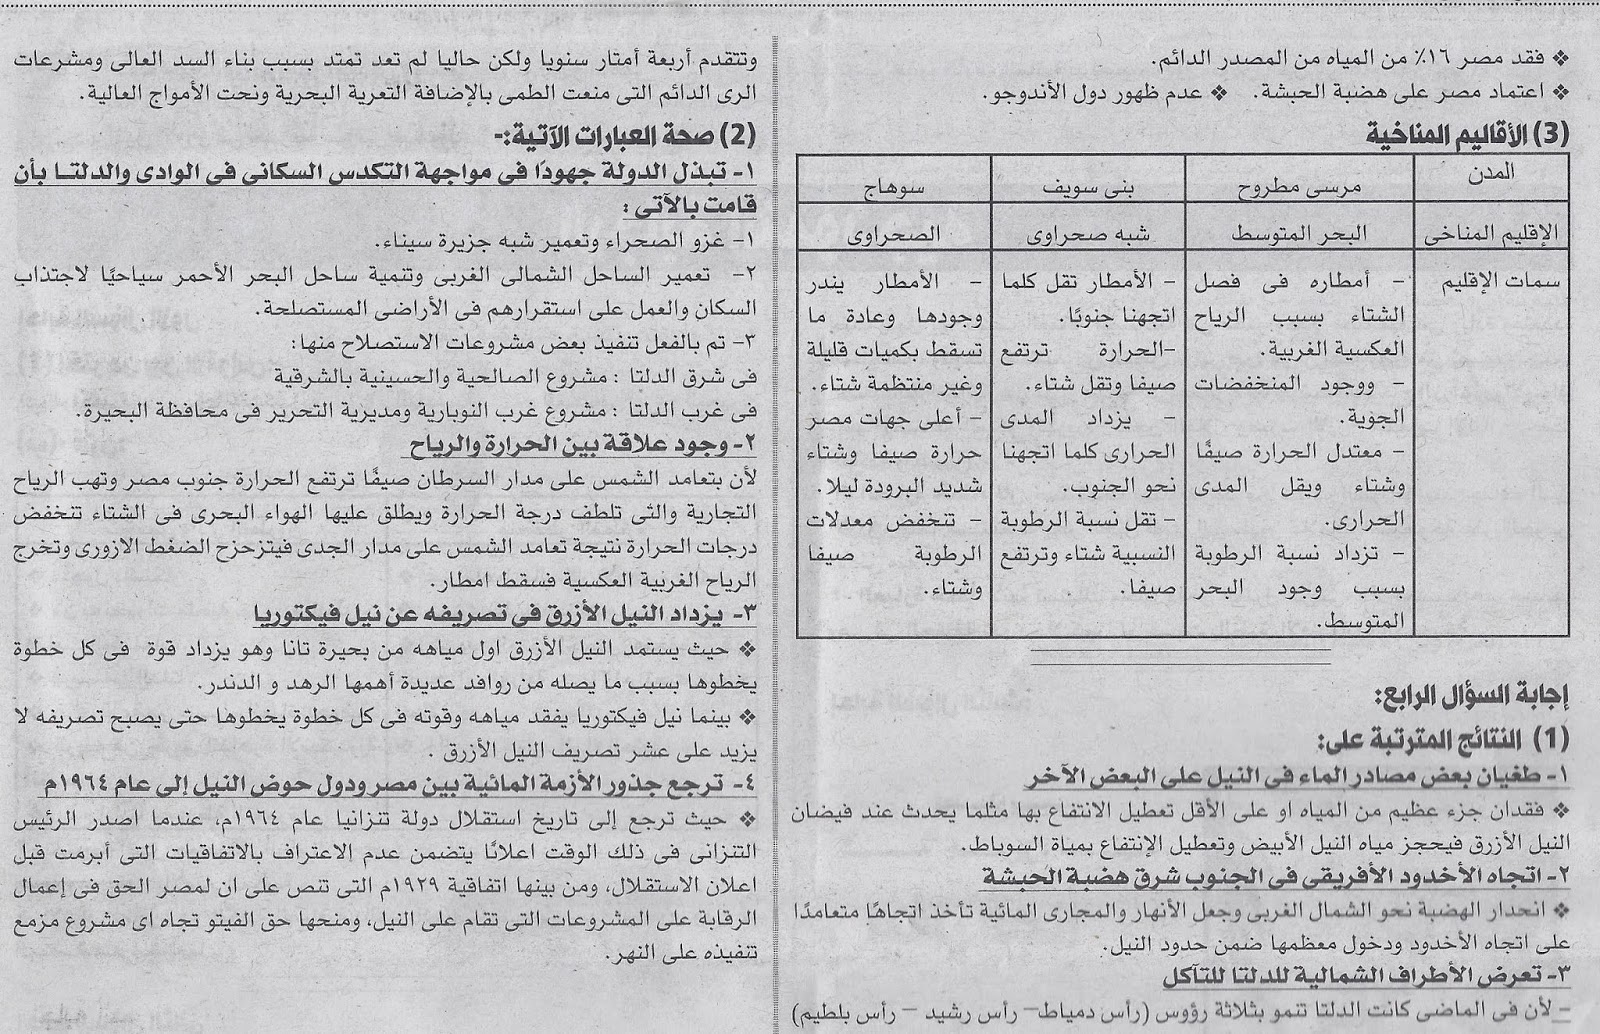 ❖ فقد مصر ١٦٪ من المياه من المصدر الدائم.
❖ اعتماد مصر على هضبة الحبشة. ❖ عدم ظهور دول الأندوجو.
(3) الأقاليم المناخية
المدن | مرسى مطروح | بنى سويف | سوهاج
الإقليم المناخى | البحر المتوسط | شبه صحراوى | الصحراوى
سمات الإقليم
– أمطاره فى فصل
الشتاء بسبب الرياح
العكسية الغربية.
– ووجود المنخفضات
الجوية.
– معتدل الحرارة صيفًا
وشتاء ويقل المدى
الحرارى.
– تزداد نسبة الرطوبة
بسبب وجود البحر
المتوسط.
– الأمطار تقل كلما
اتجهنا جنوبًا.
–الحرارة ترتفع
صيفا وتقل شتاء.
– يزداد المدى
الحرارى كلما اتجهنا
نحو الجنوب.
– تقل نسبة الرطوبة
النسبية شتاء وترتفع
صيفا.
– الأمطار يندر
وجودها وعادة ما
تسقط بكميات قليلة
وغير منتظمة شتاء.
– أعلى جهات مصر
حرارة صيفا وشتاء
شديد البرودة ليلا.
– تنخفض معدلات
الرطوبة صيفا
وشتاء.
إجابة السؤال الرابع:
(1) النتائج المترتبة على:
١- طغيان بعض مصادر الماء فى النيل على البعض الآخر
❖ فقدان جزء عظيم من المياه او على الأقل تعطيل الانتفاع بها مثلما يحدث عند فيضان
النيل الأزرق فيحجز مياه النيل الأبيض وتعطيل الإنتفاع بمياة السوباط.
٢- اتجاه الأخدود الأفريقى فى الجنوب شرق هضبة الحبشة
❖ انحدار الهضبة نحو الشمال الغربى وجعل الأنهار والمجارى المائية تأخذ اتجاهًا متعامدًا
على اتجاه الأخدود ودخول معظمها ضمن حدود النيل.
٣- تعرض الأطراف الشمالية للدلتا للتآكل
– لأن فى الماضى كانت الدلتا تنمو بثلاثة رؤوس (رأس دمياط– رأس رشيد – رأس بلطيم)
وتتقدم أربعة أمتار سنويا ولكن حاليا لم تعد تمتد بسبب بناء السد العالى ومشرعات
الرى الدائم التى منعت الطمى بالإضافة التعرية البحرية ونحت الأمواج العالية.
(2) صحة العبارات الآتية:-
١- تبذل الدولة جهودًا فى مواجهة التكدس السكانى فى الوادى والدلتا بأن
قامت بالآتى :
١- غزو الصحراء وتعمير شبه جزيرة سيناء.
٢- تعمير الساحل الشمالى الغربى وتنمية ساحل البحر الأحمر سياحيًا لاجتذاب
السكان والعمل على استقرارهم فى الأراضى المستصلحة.
٣- تم بالفعل تنفيذ بعض مشروعات الاستصلاح منها:
فى شرق الدلتا : مشروع الصالحية والحسينية بالشرقية
فى غرب الدلتا : مشروع غرب النوبارية ومديرية التحرير فى محافظة البحيرة.
٢- وجود علاقة بين الحرارة والرياح
لأن بتعامد الشمس على مدار السرطان صيفًا ترتفع الحرارة جنوب مصر وتهب الرياح
التجارية والتى تلطف درجة الحرارة ويطلق عليها الهواء البحرى فى الشتاء تنخفض
درجات الحرارة نتيجة تعامد الشمس على مدار الجدى فيتزحزح الضغط الازورى وتخرج
الرياح الغربية العكسية فسقط امطار.
٣- يزداد النيل الأزرق فى تصريفه عن نيل فيكتوريا
❖ حيث يستمد النيل الأزرق اول مياهه من بحيرة تانا وهو يزداد قوة فى كل خطوة
يخطوها بسبب ما يصله من روافد عديدة أهمها الرهد و الدندر.
❖ بينما نيل فيكتوريا يفقد مياهه وقوته فى كل خطوة يخطوها حتى يصبح تصريفه لا
يزيد على عشر تصريف النيل الأزرق .
٤- ترجع جذور الأزمة المائية بين مصر ودول حوض النيل إلى عام ١٩٦٤م
❖ حيث ترجع إلى تاريخ استقلال دولة تنزانيا عام ١٩٦٤م، عندما اصدر الرئيس
التنزانى فى ذلك الوقت اعلانًا يتضمن عدم الاعتراف بالاتفاقيات التى أبرمت قبل
اعلان الاستقلال، ومن بينها اتفاقية ١٩٢٩م التى تنص على ان لمصر الحق فى إعمال
الرقابة على المشروعات التى تقام على النيل، ومنحها حق الفيتو تجاه اى مشروع مزمع
تنفيذه على النهر.